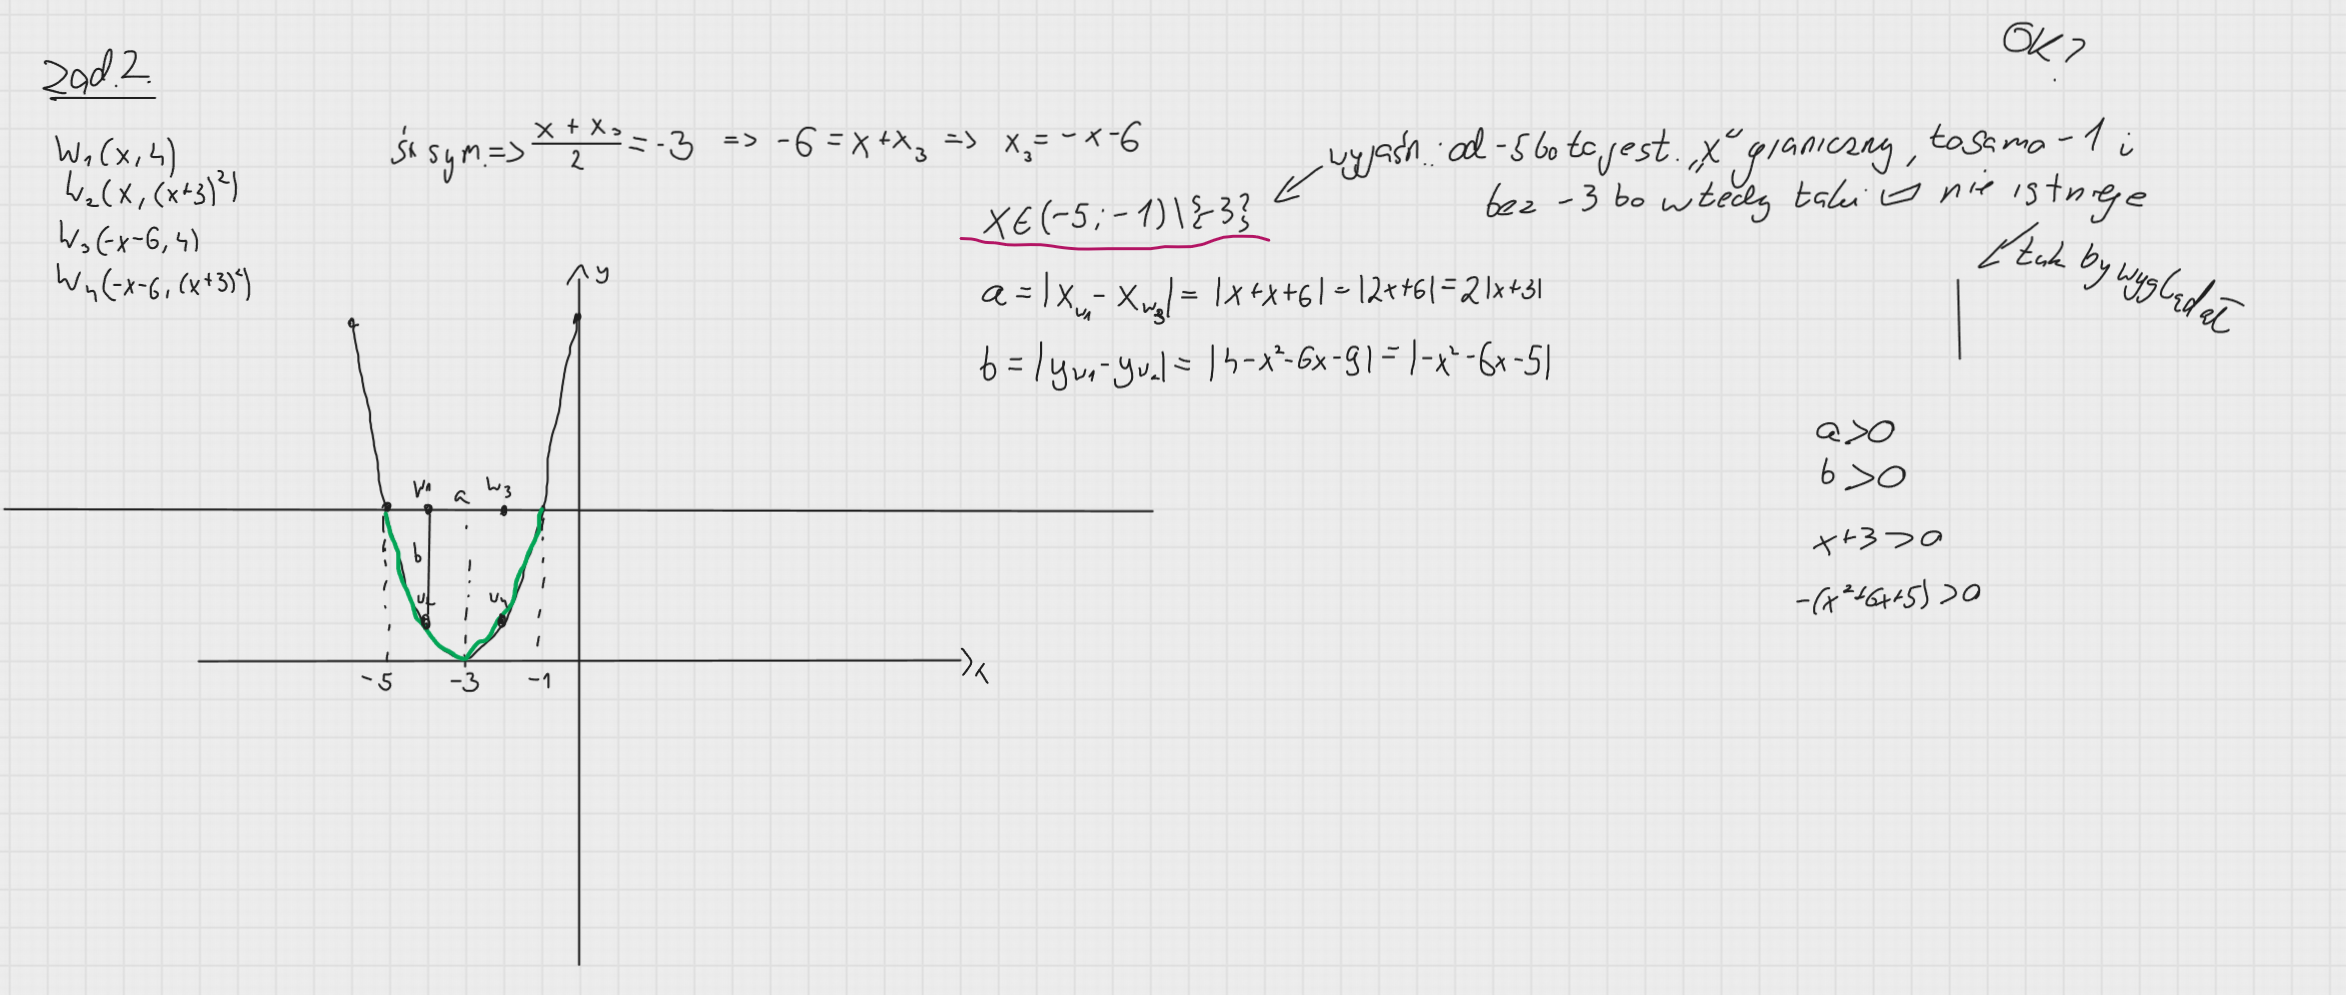 OK?
Zad.2.
W₁(x, 4)
W₂(x, (x+3)²)
W₃(-x-6, 4)
W₄(-x-6, (x+3)²)
śr sym. => (x + x₃)/2 = -3 => -6 = x+x₃ => x₃ = -x-6
wyjaśn.: od -5 bo to jest „x" graniczny, to samo -1 i
bez -3 bo wtedy taki ▱ nie istnieje
x∈(-5;-1)\{-3}
tak by wyglądał
a = |x_w₁ - x_w₃| = |x+x+6| = |2x+6| = 2|x+3|
b = |y_w₁ - y_w₂| = |4-x²-6x-9| = |-x²-6x-5|
a>0
b>0
x+3>0
-(x²+6x+5)>0
y
W₁ a W₃
b
W₂ W₄
-5 -3 -1
x